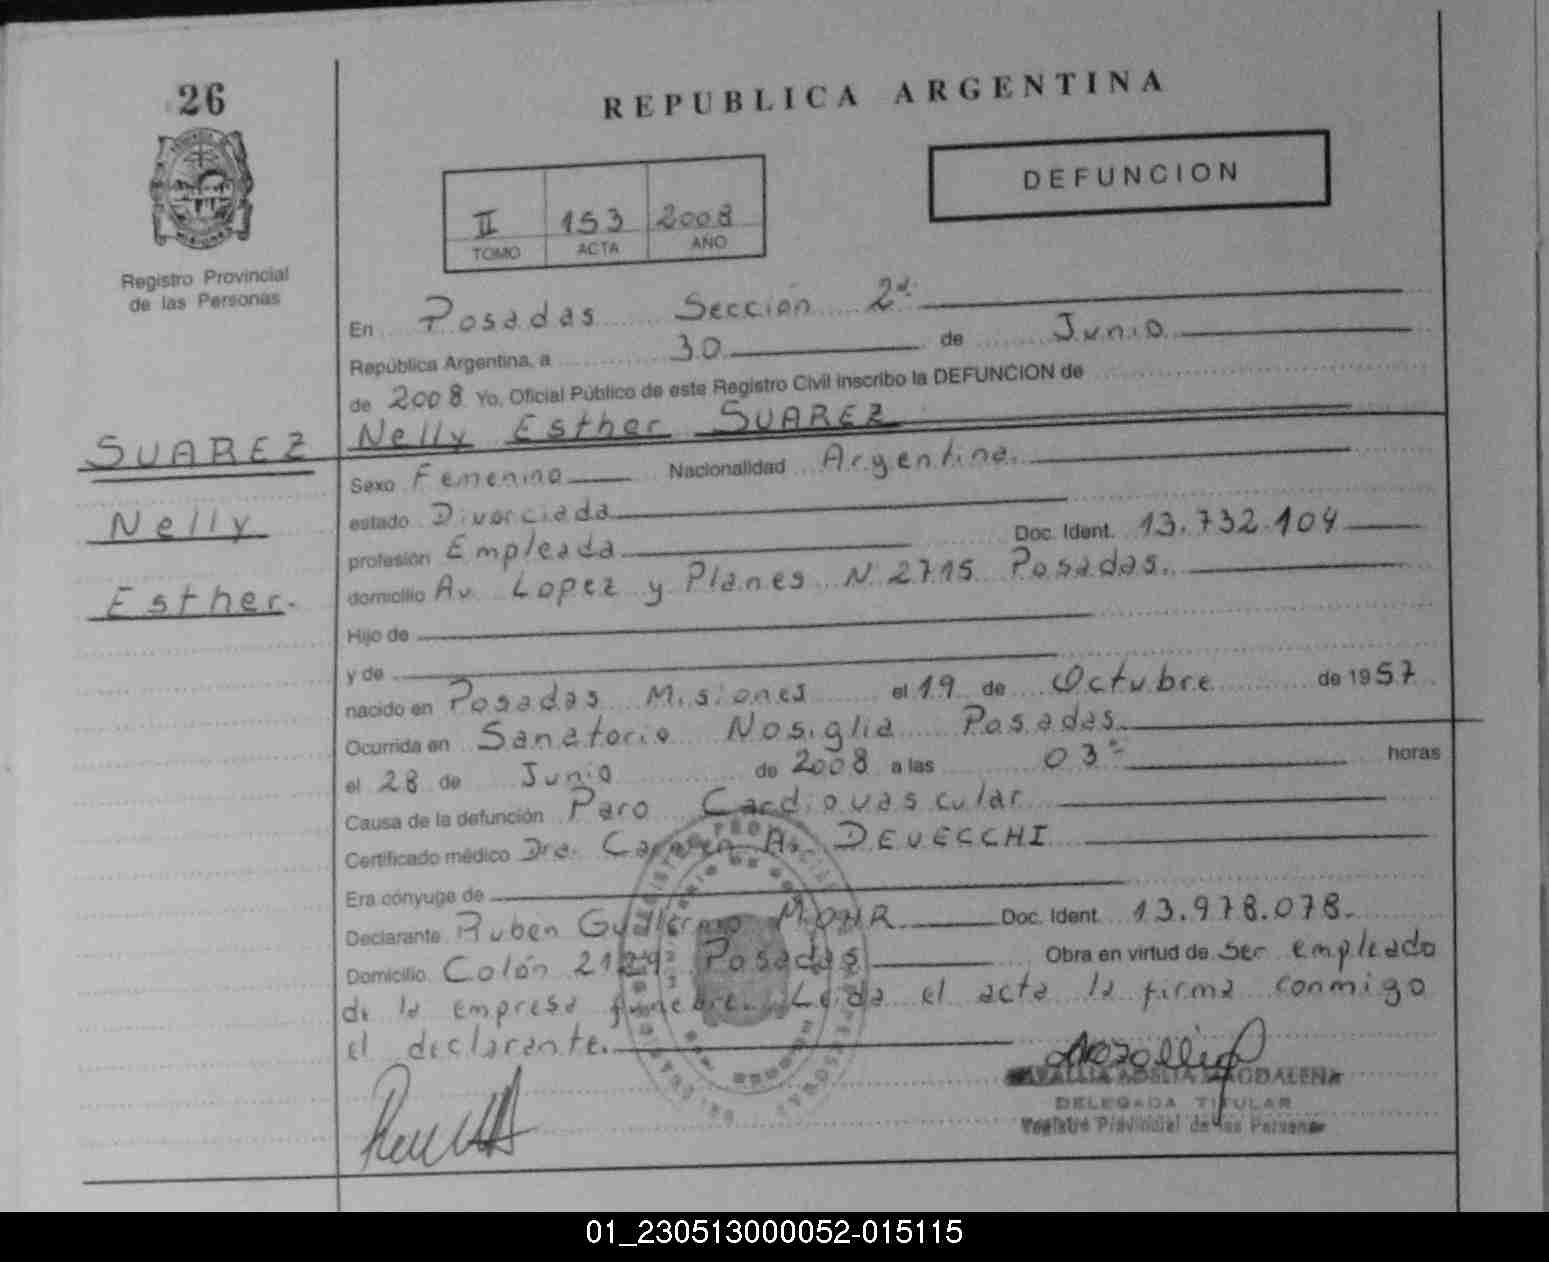 26
REPUBLICA ARGENTINA
DEFUNCION
II 153 2008
TOMO ACTA AÑO
Registro Provincial
de las Personas
En Posadas Sección 2ª
República Argentina, a 30 de Junio
de 2008 Yo, Oficial Público de este Registro Civil inscribo la DEFUNCION de
SUAREZ Nelly Esther SUAREZ
Sexo Femenino Nacionalidad Argentina
Nelly
estado Divorciada
profesión Empleada Doc. Ident. 13.732.104
Esther.
domicilio Av. Lopez y Planes N. 2715 Posadas.
Hijo de
y de
nacido en Posadas Misiones el 19 de Octubre de 1957
Ocurrida en Sanatorio Nosiglia Posadas
el 28 de Junio de 2008 a las 03 horas
Causa de la defunción Paro Cardiovascular
Certificado médico Dra. A. DEVECCHI
Era cónyuge de
Declarante Ruben Guillermo MOHR Doc. Ident. 13.978.078.
Domicilio Colón Posadas Obra en virtud de Ser empleado
de la empresa funebre. Leida el acta la firma conmigo
el declarante.
ADELIA MAGDALENA
DELEGADA TITULAR
Registro Provincial de las Personas
01_230513000052-015115